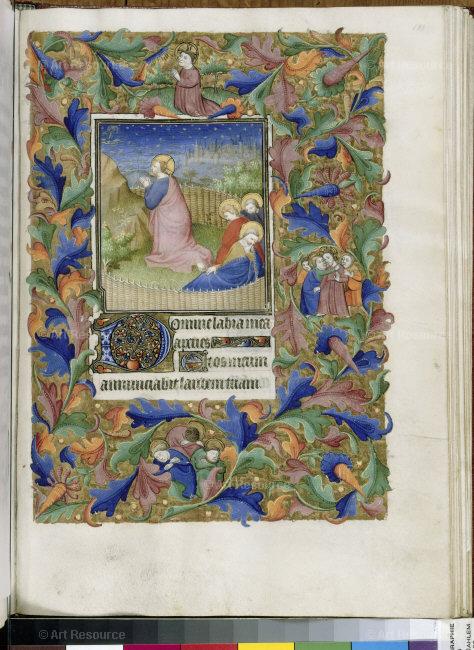 Domine labia mea
aperies
Et os meum
annunciabit laudem tuam
© Art Resource
© Art Resource